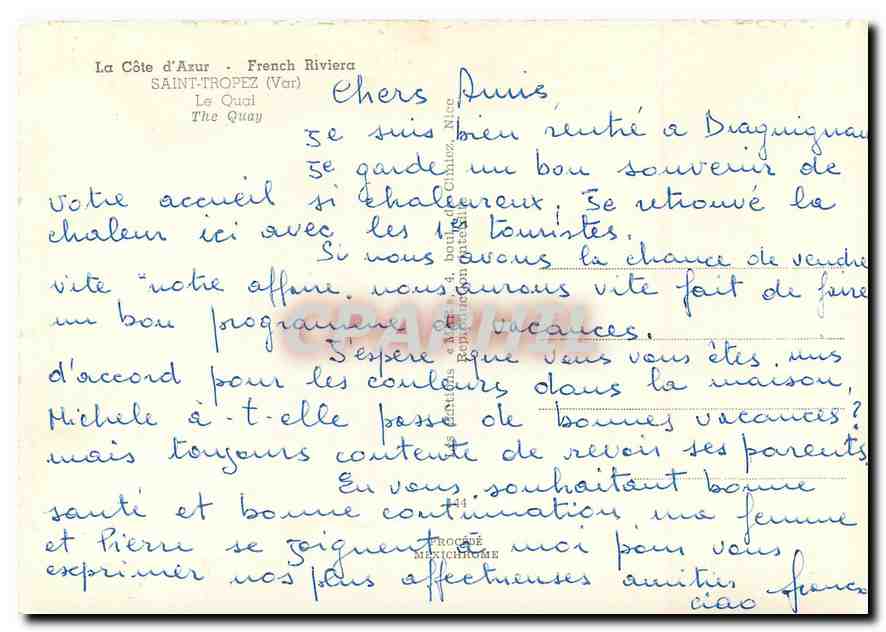 La Côte d'Azur - French Riviera
SAINT-TROPEZ (Var)
Le Quai
The Quay
Chers Amis,
Je suis bien rentré a Draguignan
Je garde un bon souvenir de
votre accueil si chaleureux, Je retrouvé la
chaleur ici avec les 1ers touristes.
Si nous avons la chance de vendre
vite "notre affaire, nous aurons vite fait de faire
un bon programme de vacances.
J'espère que vous vous êtes mis
d'accord pour les couleurs dans la maison,
Michele à-t-elle passé de bonnes vacances?
mais toujours contente de revoir ses parents.
En vous souhaitant bonne
santé et bonne continuation, ma femme
et Pierre se joignent à moi pour vous
exprimer nos plus affectueuses amitiés
ciao
Les Editions « MAR », 4, boul. de Cimiez, Nice
Reproduction interdite
144
PROCÉDÉ
MEXICHROME
CPARAMA